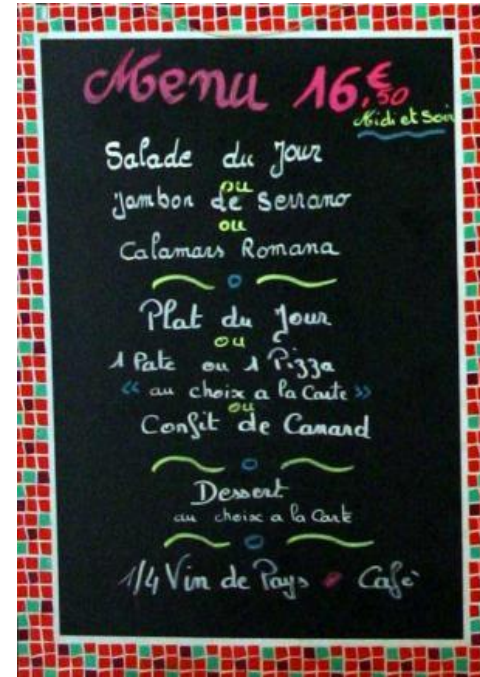 Menu 16,€50
Midi et Soir
Salade du Jour
ou
jambon de Serrano
ou
Calamars Romana
Plat du Jour
ou
1 Pate ou 1 Pizza
« au choix a la Carte »
ou
Confit de Canard
Dessert
au choix a la Carte
1/4 Vin de Pays • Cafè